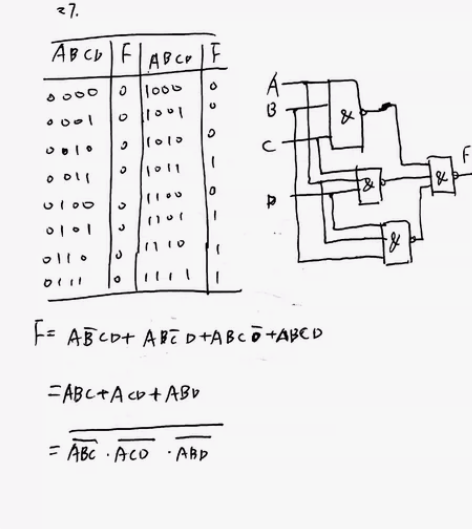 27.
ABCD F ABCD F
0000 0 1000 0
0001 0 1001 0
0010 0 1010 0
0011 0 1011 1
0100 0 1100 0
0101 0 1101 1
0110 0 1110 1
0111 0 1111 1
A
B
C
D
&
&
&
&
F
F= AB̅CD+ ABC̅D+ABCD̅+ABCD
=ABC+ACD+ABD
= \overline{\overline{ABC}·\overline{ACD}·\overline{ABD}}